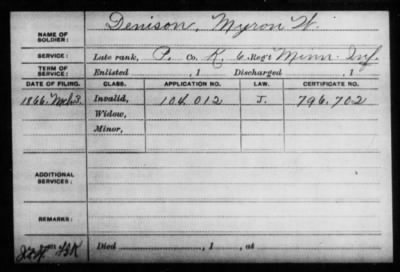 NAME OF SOLDIER: Denison, Myron W.
SERVICE: Late rank, P. Co. K, 6 Reg't Minn. Inf.
TERM OF SERVICE: Enlisted , 1 Discharged , 1
DATE OF FILING. CLASS. APPLICATION NO. LAW. CERTIFICATE NO.
1866, Mch 3. Invalid, 104.012 J. 796.702
Widow,
Minor,
ADDITIONAL SERVICES:
REMARKS:
Died , 1 , at